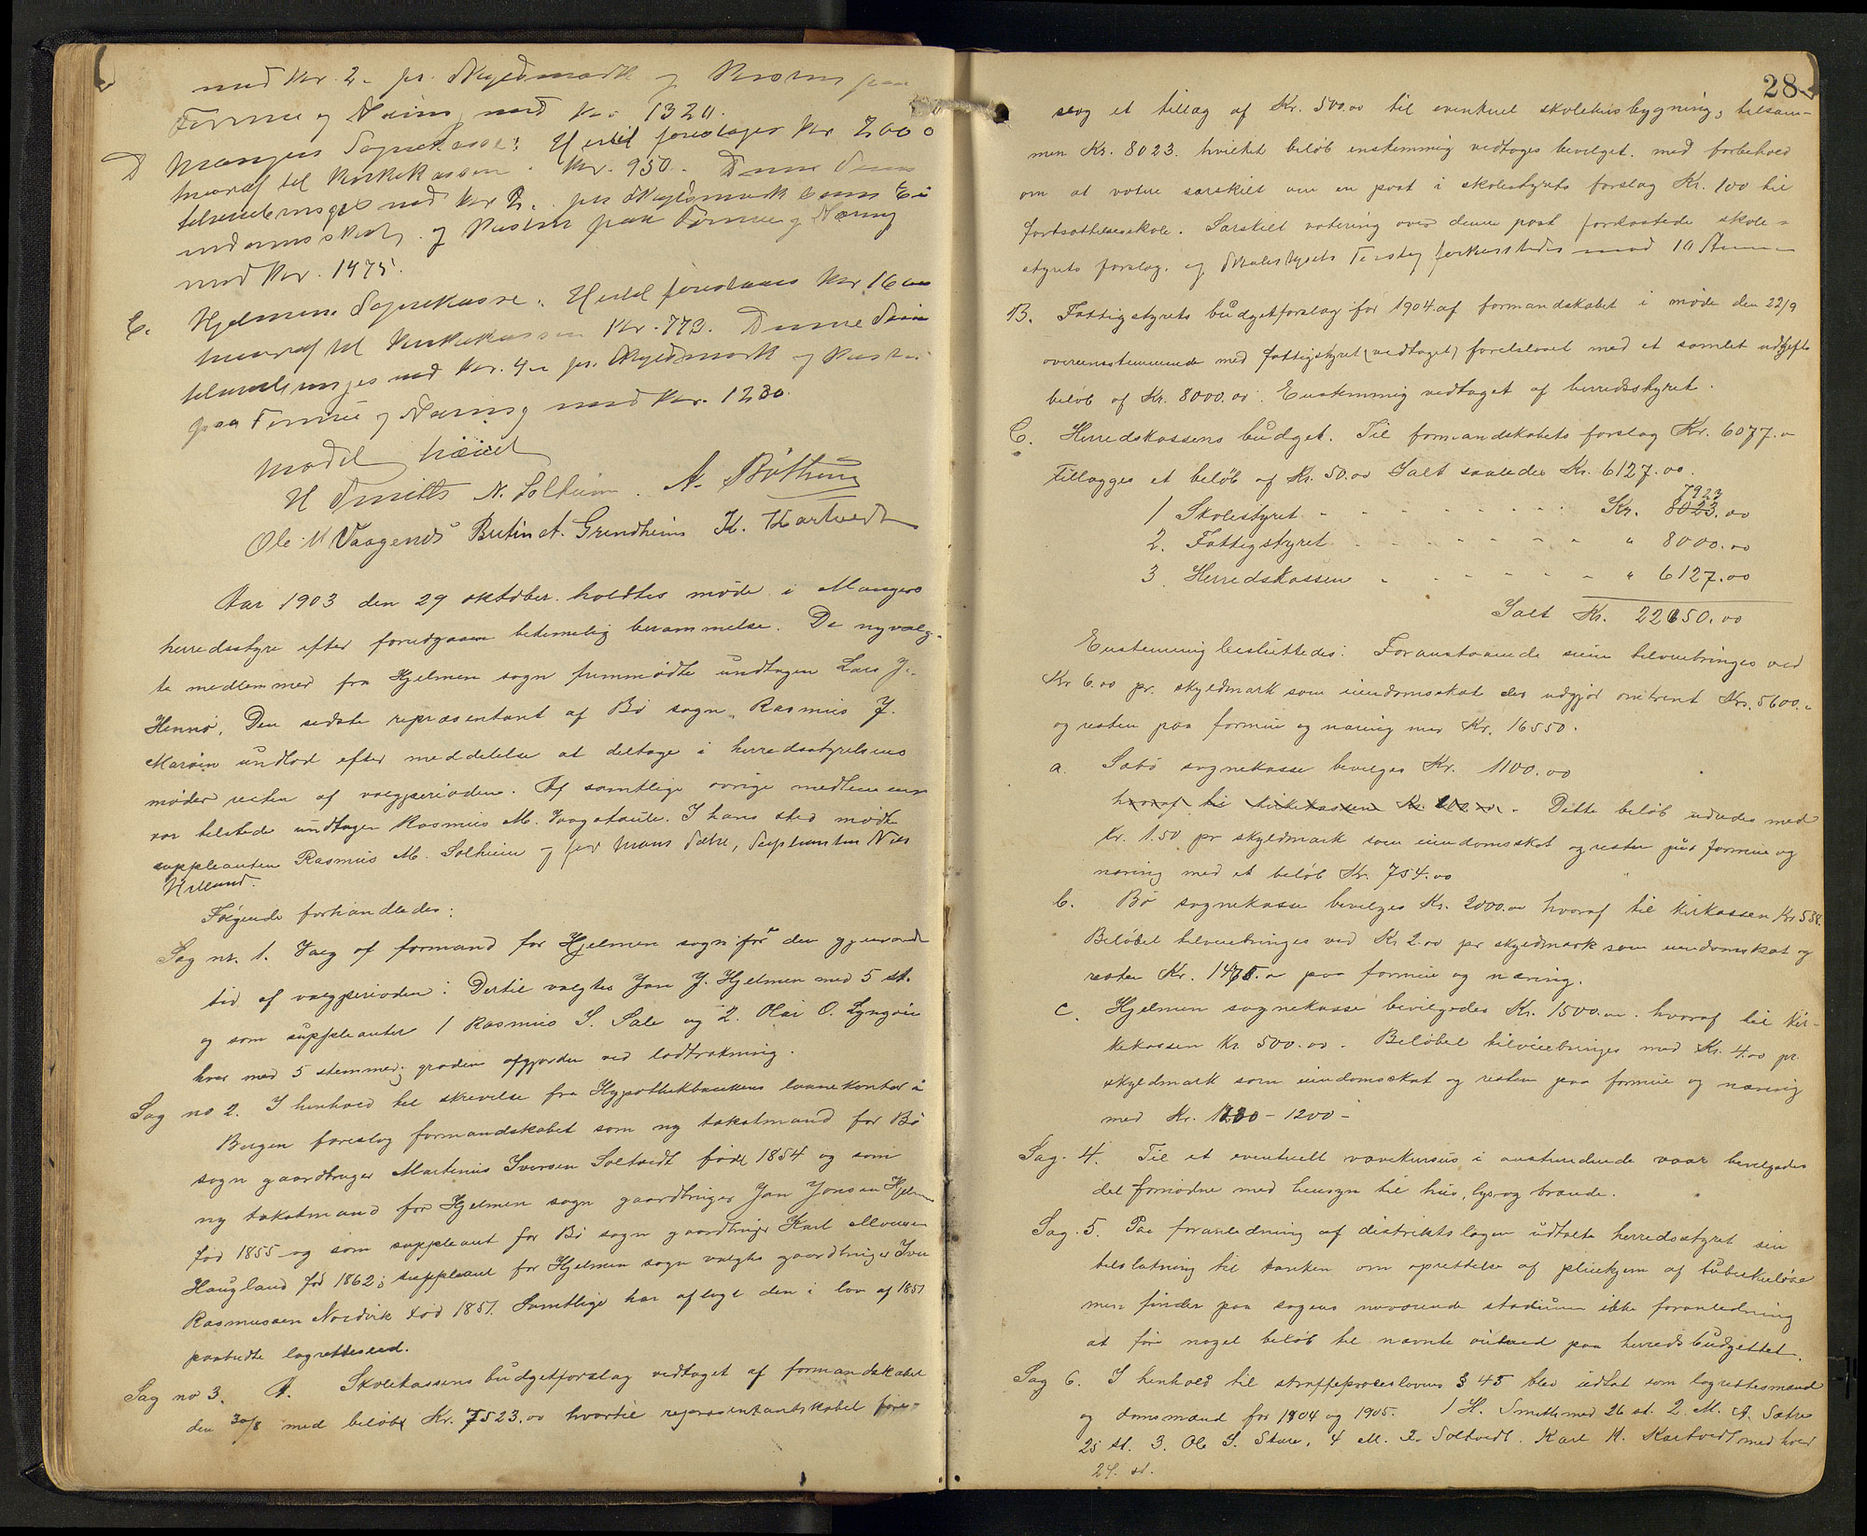 med Kr. 2.- pr. Skyldmark og Resten paa
Formue og Næring med Kr. 1320.
D Mangers Sognekasse: Hertil foreslages Kr 2000
hvoraf til Kirkekassen Kr. 950. Denne Sum
med Kr 2. pr. Skyldmark som Ei-
endomsskat og Resten paa Formue og Næring
med Kr. 1475.
E. Hjelmens Sognekasse. Hertil foreslaaes Kr 1600
hvoraf til Kirkekassen Kr. 773. Denne Sum
tilveiebringes med Kr. 4.- pr. Skyldmark og Resten
paa Formue og Næring med Kr. 1230.
Mødet hævet
H Smith N. Solheim. A. Bøthun
Ole M Vaagenes Berlin A. Grendheim K. Kartvedt
Aar 1903 den 29 oktober holdtes møde i Mangers
herredsstyre efter foregaaen betimelig berammelse. De nyvalg-
te medlemmer fra Hjelmen sogn fremmødte undtagen Lars J.
Hennø. Den sidste repræsentant af Bø sogn, Rasmus J.
Marøin undlod efter meddelelse at deltage i herredsstyrelsens
møder resten af valgperioden. Af samtlige øvrige medlemmer
var tilstede undtagen Rasmus M. Vaagstaule. I hans sted mødte
suppleanten Rasmus M. Solheim og for Mons Sætre, Suplianten Nils
Helland.
Følgende forhandledes:
Sag nr. 1. Valg af formand for Hjelmen sogn for den gjenværende
tid af valgperioden: Dertil valgtes Jan J. Hjelmen med 5 st.
og som suppleanter 1 Rasmus S. Sale og 2. Olai O. Lyngøie
hver med 5 stemmer; graden afgjordes ved lodtrækning.
Sag no 2. I henhold til skrivelse fra Hypothekbankens laanekontor i
Bergen foreslog formandskabet som ny takstmand for Bø
sogn gaardbruger Martinus Iversen Soltvedt født 1854 og som
ny takstmand for Hjelmen sogn gaardbruger Jan Jonsen Hjelmen
fød 1855 og som suppleant for Bø sogn gaardbruger Karl Monsen
Haugland fød 1862; suppleant for Hjelmen sogn valgtes gaardbruger Iver
Rasmussen Nordvik fød 1851. Samtlige har aflagt den i lov af 1851
paabudte lagretteseed.
Sag no 3. A. Skolekassens budgetforslag vedtaget af formandskabet
den 30/8 med beløbet Kr. 7523.00 hvortil repræsentantskabet fore-
28
slog et tillæg af Kr. 500.00 til eventuel skolehusbygning, tilsam-
men Kr. 8023. hvilket beløb enstemmig vedtoges bevilget. med forbehold
om at votere særskilt over en post i skolestyrets forslag Kr. 100 til
fortsættelsesskole. Særskilt votering over denne post forkastede skole-
styrets forslag. og Skolestyrets Forslag forkastedes med 10 Stemmer
B. Fattigstyrets budgetforslag for 1904 af formandskabet i møde den 22/9
overensstemmende med fattigstyret (vedtaget) foreslaaet med et samlet udgifts
beløb af Kr. 8000.00. Enstemmig vedtaget af herredsstyret.
C. Herredskassens budget. Til formandskabets forslag Kr. 6077.-
Tillægges et beløb af Kr. 50.00 Ialt saaledes Kr. 6127.00.
7923
1 Skolestyret - - - - - - - - Kr. 8023.00
2. Fattigstyret - - - - - - - " 8000.00
3 Herredskassen - - - - - - - " 6127.00
Ialt Kr. 22050.00
Enstemmig besluttedes: Foranstaaende sum tilveiebringes ved
Kr 6.00 pr. skyldmark som eiendomsskat der udgjør omtrent Kr. 5600.-
og resten paa formue og næring med Kr. 16550.
a. Sæbø sognekasse bevilges Kr. 1100.00
hvoraf til kirkekassen Kr. 200.00. Dette beløb udredes med
Kr. 1.50 pr skyldmark som eiendomsskat og resten paa formue og
næring med et beløb Kr. 754.00
b. Bø sognekasse bevilges Kr. 2000.00 hvoraf til kirkassen Kr 538
Beløbet tilveiebringes ved Kr 2.00 pr skyldmark som eiendomsskat og
resten Kr. 1475.- paa formue og næring.
c. Hjelmen sognekasse bevilgedes Kr. 1500.00. hvoraf til kir-
kekassen Kr. 500.00. Beløbet tilveiebringes med Kr. 4.00 pr.
skyldmark som eiendomsskat og resten paa formue og næring
med Kr. 1230 - 1200 -
Sag. 4. Til et eventuelt vævekursus i anstundende vaar bevilgedes
det fornødne med hensyn til hus, lys og brænde.
Sag. 5. Paa foranledning af distriktslægen udtalte herredsstyret sin
tilslutning til tanken om oprettelse af pleiehjem af tuberkuløse
men finder paa sagens nuværende stadium ikke foranledning
at føre noget beløb til nævnte øiemed paa herredsbudgettet.
Sag 6. I henhold til straffeproceslovens § 45 blev udtat som lagrettesmænd
og domsmænd for 1904 og 1905. 1 H. Smith med 26 st. 2. M. A. Sætre
25 st. 3. Ole S. Sture, 4 M. I. Soltvedt. Karl K. Kartvedt med hver
24. st.